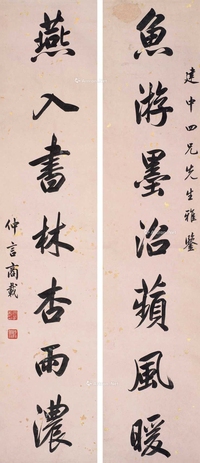 建中四兄先生雅鑒
魚游墨沼蘋風暖
燕入書林杏雨濃
仲言商載